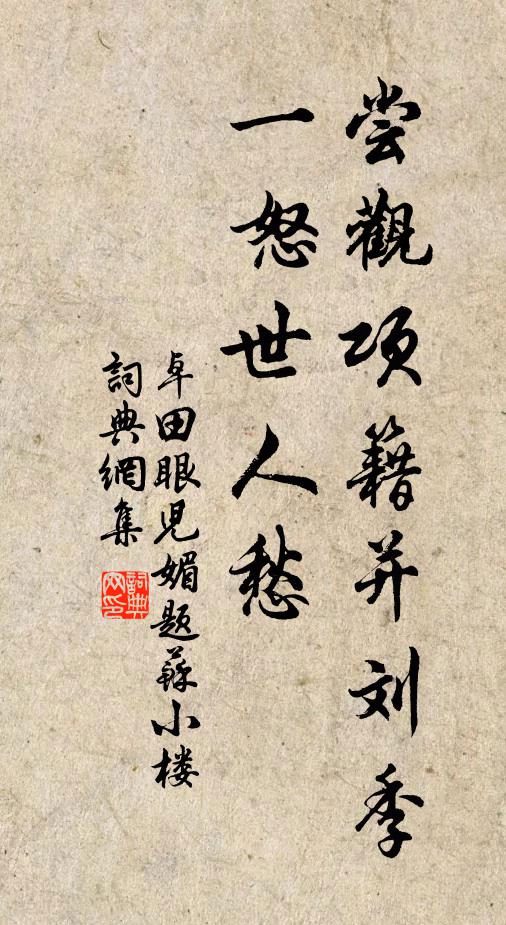 尝觀项籍并刘季
一怒世人愁
卓田眼児媚题蘇小楼
詞典網集
詞典網印